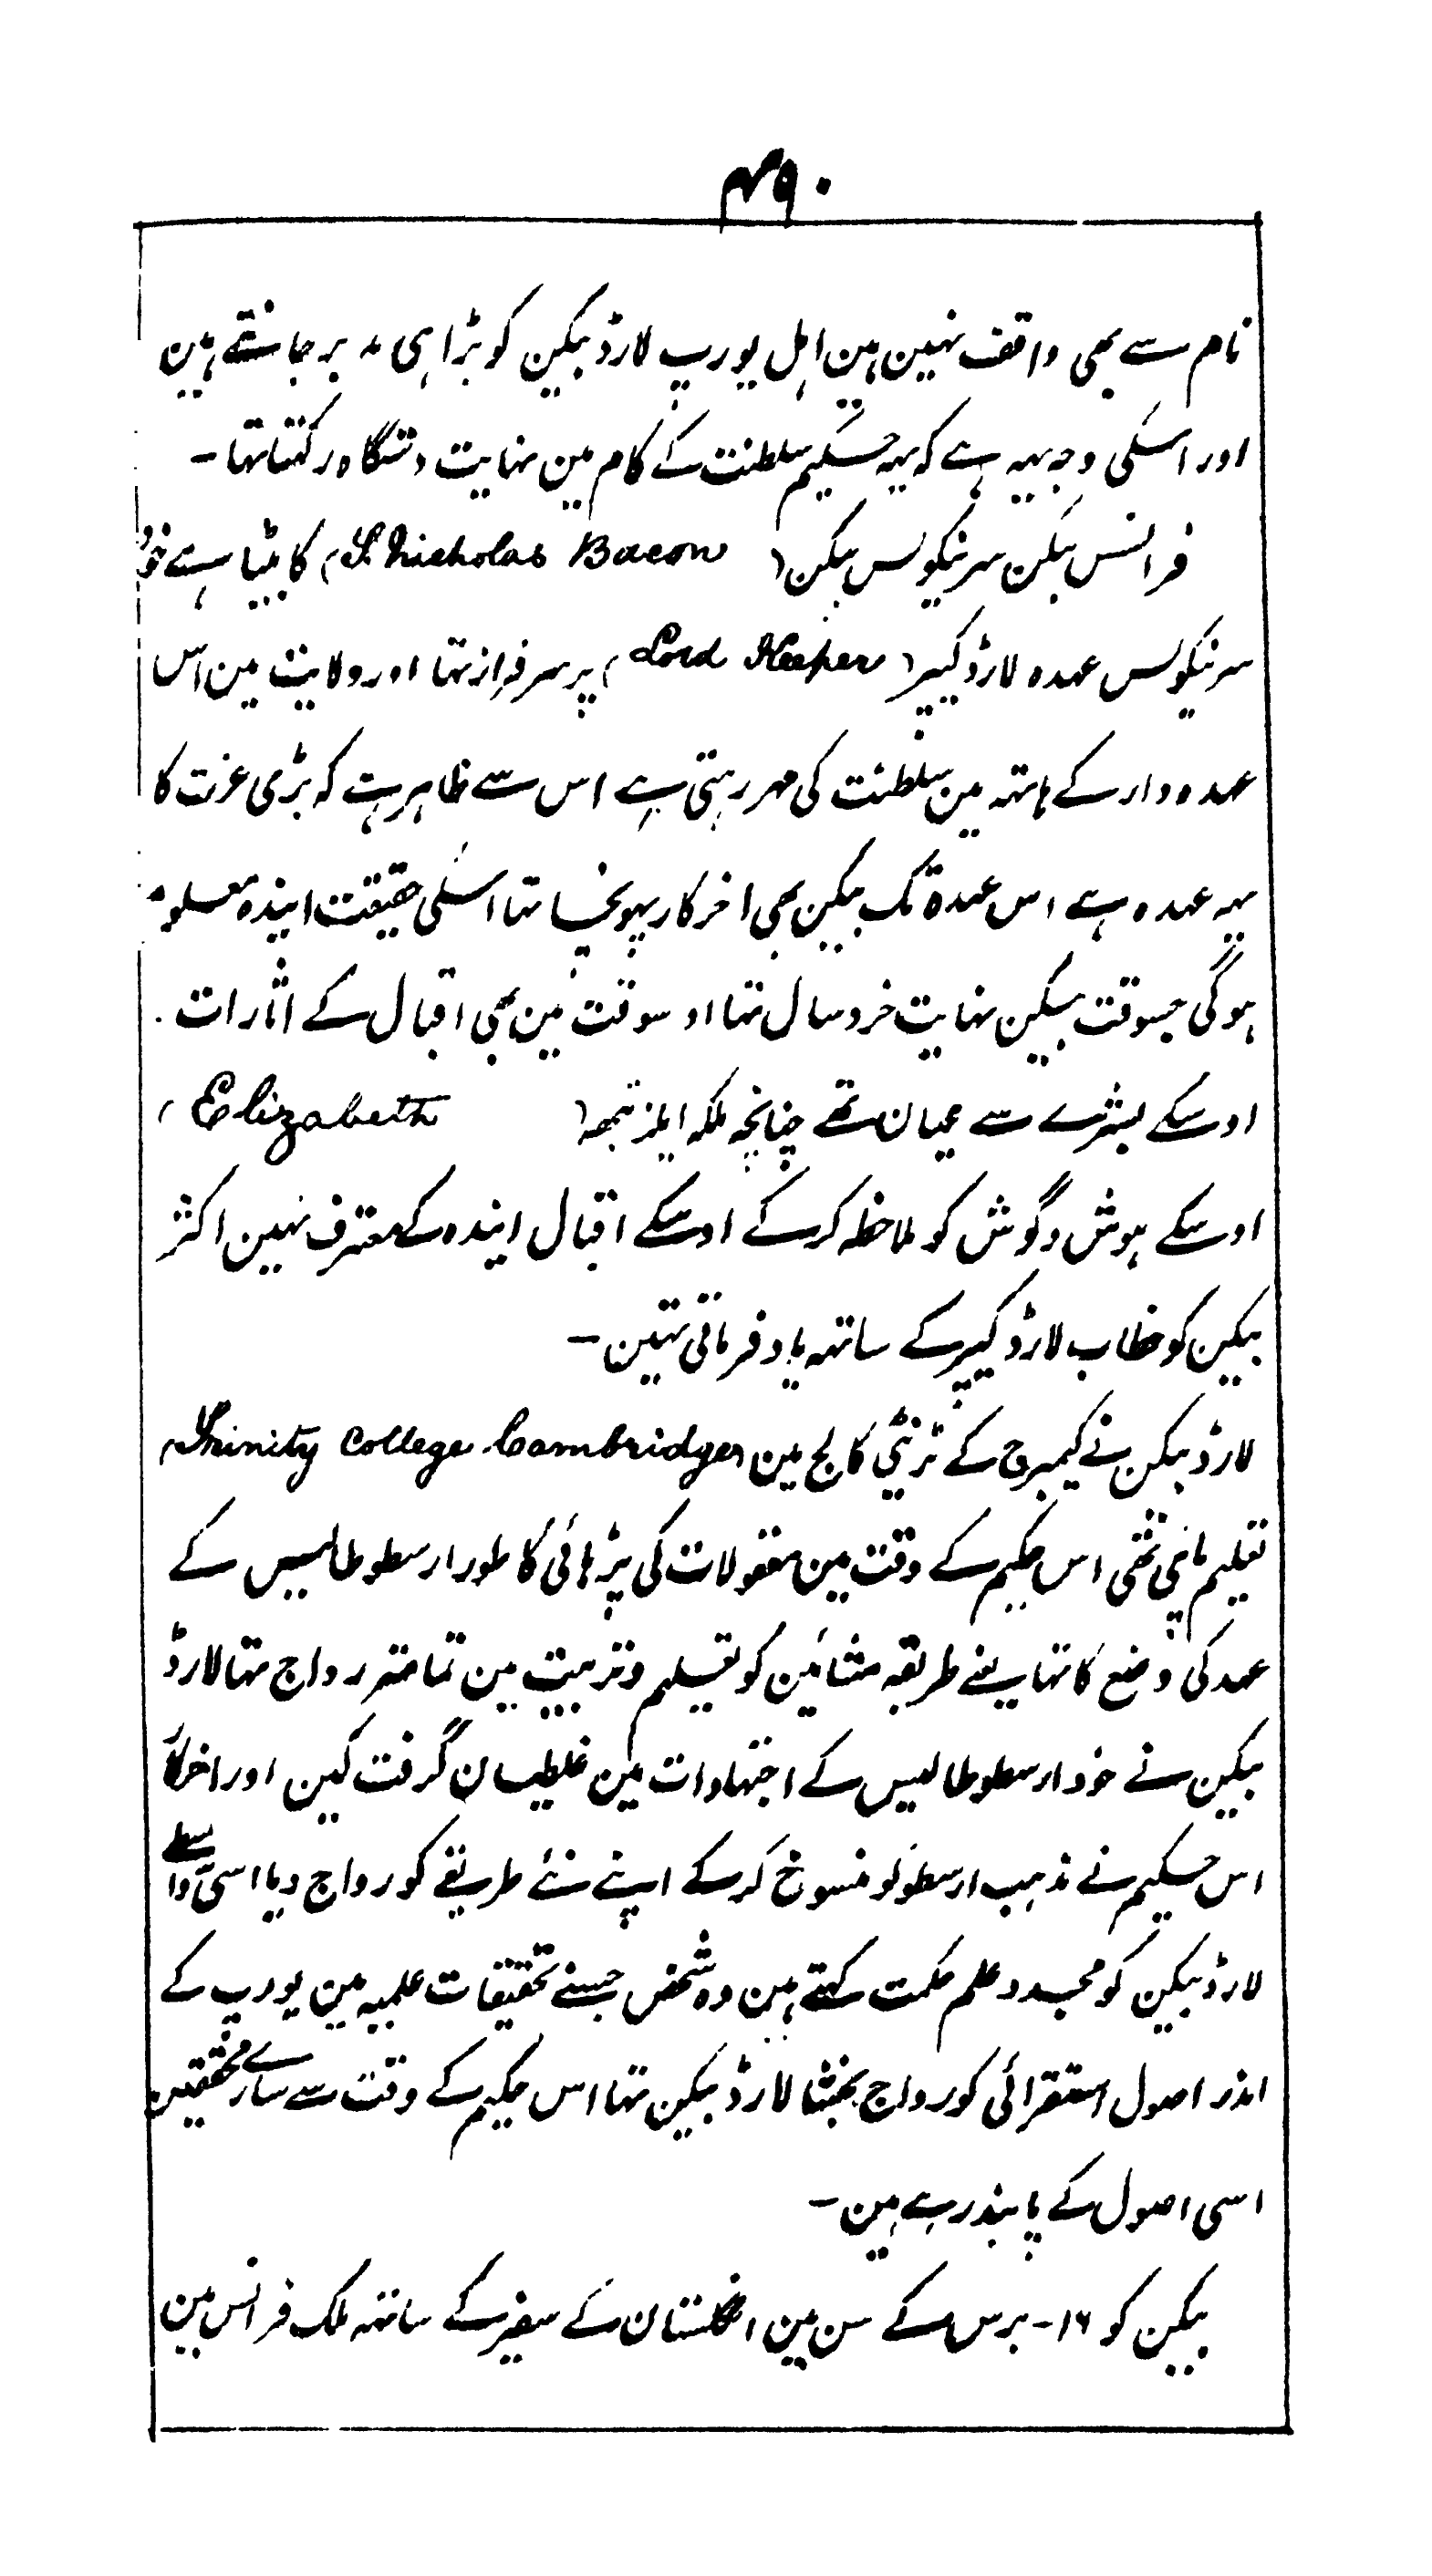 ۴۹۰
نام سے بھی واقف نہین ہین اہل یورپ لارڈ بیکین کو بڑا ہی مدبر جانتے ہین
اور اسکی وجہ یہہ ہے کہ یہہ حکیم سلطنت کے کام مین نہایت دستگاہ رکہتا تہا -
فرانسس بیکن سر نیکولس بیکن (S. Nicholas Bacon) کا بیٹا ہے خود
سر نیکولس عہدہ لارڈ کیپر (Lord Keeper) پر سرفراز تہا اور ولایت مین اس
عہدہ دار کے ہاتہہ مین سلطنت کی مہر رہتی ہے اس سے ظاہر ہے کہ بڑی عزت کا
یہہ عہدہ ہے اس عہدہ تک بیکین بھی اخر کار پہونچا تہا اسکی حقیقت ایندہ معلوم
ہوگی جسوقت بیکین نہایت خرد سال تہا اوسوقت مین بھی اقبال کے اثارات
اوسکے بشرے سے عیان تھے چنانچہ ملکہ ایلزبتھہ (Elizabeth)
اوسکے ہوش و گوش کو ملاحظہ کرکے اوسکے اقبال ایندہ کے معترف تہین اکثر
بیکین کو خطاب لارڈ کیپر کے ساتہہ یاد فرماتی تہین -
لارڈ بیکن نے کیمبرج کے ترنٹی کالج مین (Trinity College Cambridge)
تعلیم پائی تھی اس حکیم کے وقت مین معقولات کی پڑہائی کا طور ارسطوطالیس کے
عہد کی وضع کا تہا یعنے طریقہ مشائین کو تعلیم و تربیت مین تمامتر رواج تہا لارڈ
بیکین نے خود ارسطوطالیس کے اجتہادات مین غلطیان گرفت کین اور اخرکار
اس حکیم نے مذہب ارسطو کو منسوخ کرکے اپنے نئے طریقے کو رواج دیا اسی واسطے
لارڈ بیکین کو مجدد علم حکمت کہتے ہین وہ شخص جسنے تحقیقات علمیہ مین یورپ کے
اندر اصول استقرائی کو رواج بخشا لارڈ بیکین تہا اس حکیم کے وقت سے سارے محققین
اسی اصول کے پابند رہے ہین -
بیکین کو ۱۶- برس کے سن مین انگلستان کے سفیر کے ساتہہ ملک فرانس مین